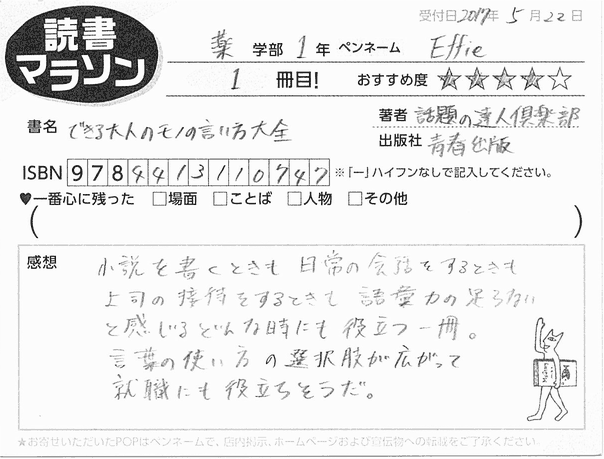 受付日2017年 5月22日
読書マラソン
薬 学部 1 年 ペンネーム Effie
1 冊目! おすすめ度 ★★★★☆
書名 できる大人のモノの言い方大全
著者 話題の達人倶楽部
出版社 青春出版
ISBN 9784413110747 ※「ー」ハイフンなしで記入してください。
♥一番心に残った □場面 □ことば □人物 □その他
( )
感想
小説を書くときも 日常の会話をするときも
上司の接待をするときも 語彙力の足らない
と感じるどんな時にも 役立つ一冊。
言葉の使い方の選択肢が広がって
就職にも役立ちそうだ。
★お寄せいただいたPOPはペンネームで、店内掲示、ホームページおよび宣伝物への転載をご了承ください。